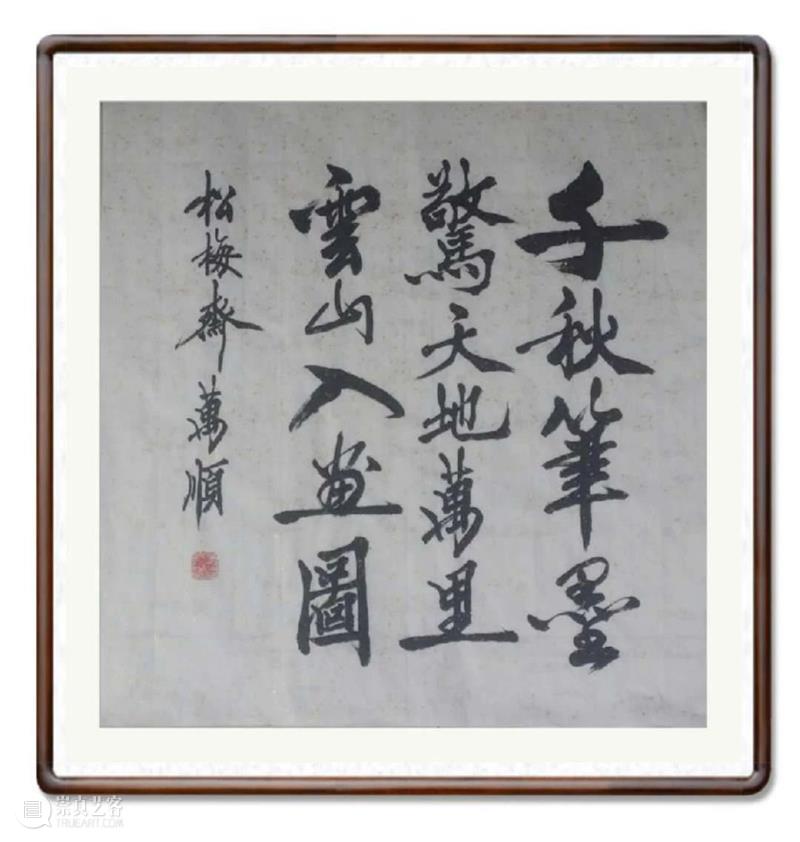 千秋筆墨
驚天地萬里
雲山入畫圖
松梅齋 萬順
崇真艺客
TRUEART.COM